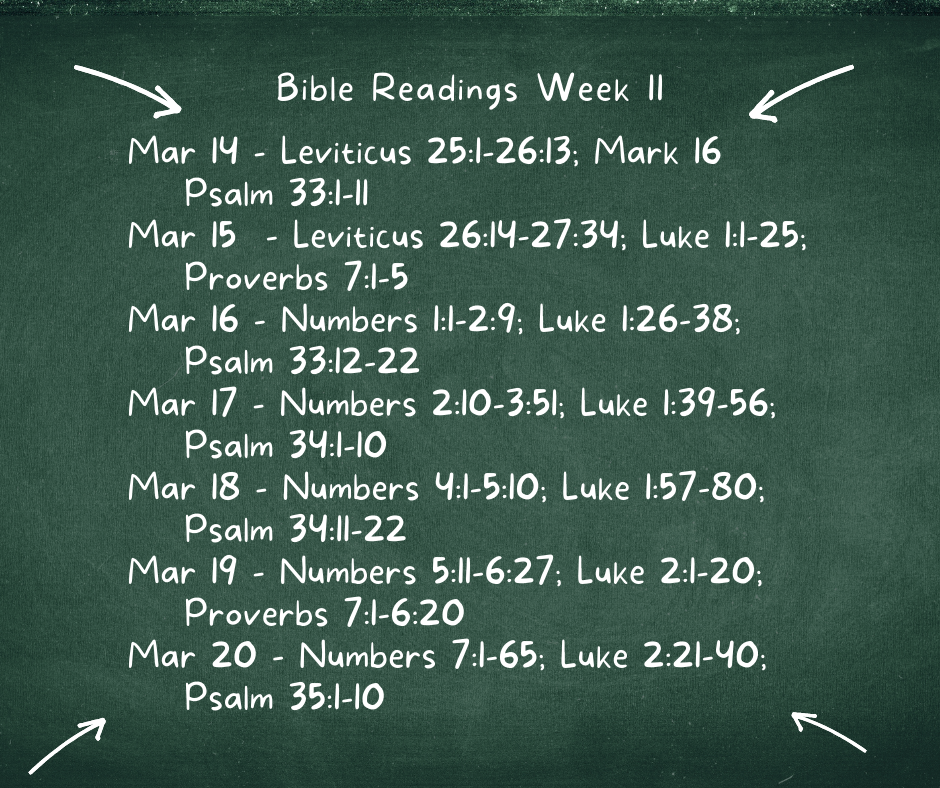 Bible Readings Week 11
Mar 14 - Leviticus 25:1-26:13; Mark 16
Psalm 33:1-11
Mar 15 - Leviticus 26:14-27:34; Luke 1:1-25;
Proverbs 7:1-5
Mar 16 - Numbers 1:1-2:9; Luke 1:26-38;
Psalm 33:12-22
Mar 17 - Numbers 2:10-3:51; Luke 1:39-56;
Psalm 34:1-10
Mar 18 - Numbers 4:1-5:10; Luke 1:57-80;
Psalm 34:11-22
Mar 19 - Numbers 5:11-6:27; Luke 2:1-20;
Proverbs 7:1-6:20
Mar 20 - Numbers 7:1-65; Luke 2:21-40;
Psalm 35:1-10